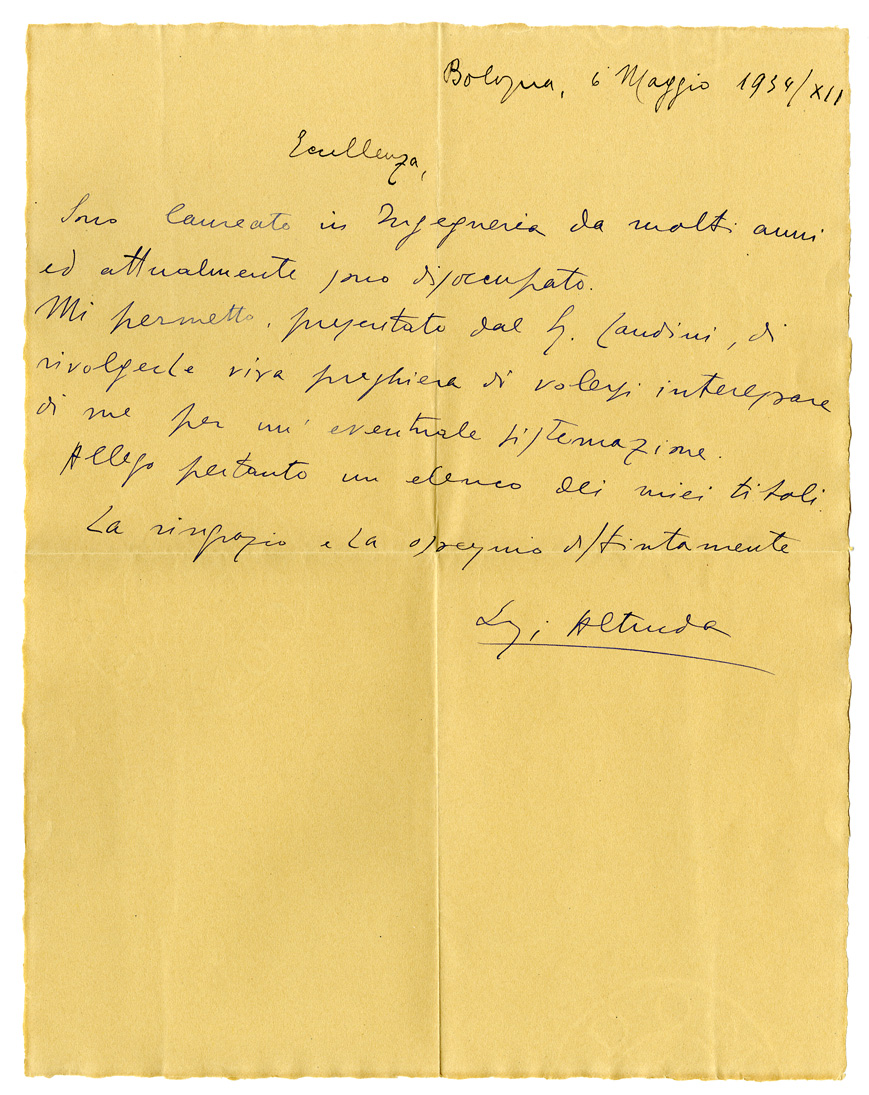 Bologna, 6 Maggio 1934/XII
Eccellenza,
Sono laureato in Ingegneria da molti anni
ed attualmente sono disoccupato.
Mi permetto, presentato dal S. Landini, di
rivolgerLe viva preghiera di volersi interessare
di me per un' eventuale sistemazione.
Allego pertanto un elenco dei miei titoli.
La ringrazio e La ossequio distintamente
Luigi